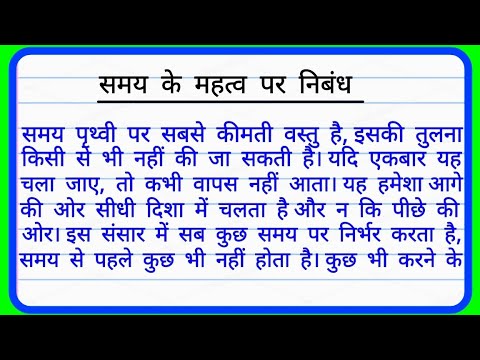 समय के महत्व पर निबंध
समय पृथ्वी पर सबसे कीमती वस्तु है, इसकी तुलना
किसी से भी नहीं की जा सकती है। यदि एकबार यह
चला जाए, तो कभी वापस नहीं आता। यह हमेशा आगे
की ओर सीधी दिशा में चलता है और न कि पीछे की
ओर। इस संसार में सब कुछ समय पर निर्भर करता है,
समय से पहले कुछ भी नहीं होता है। कुछ भी करने के